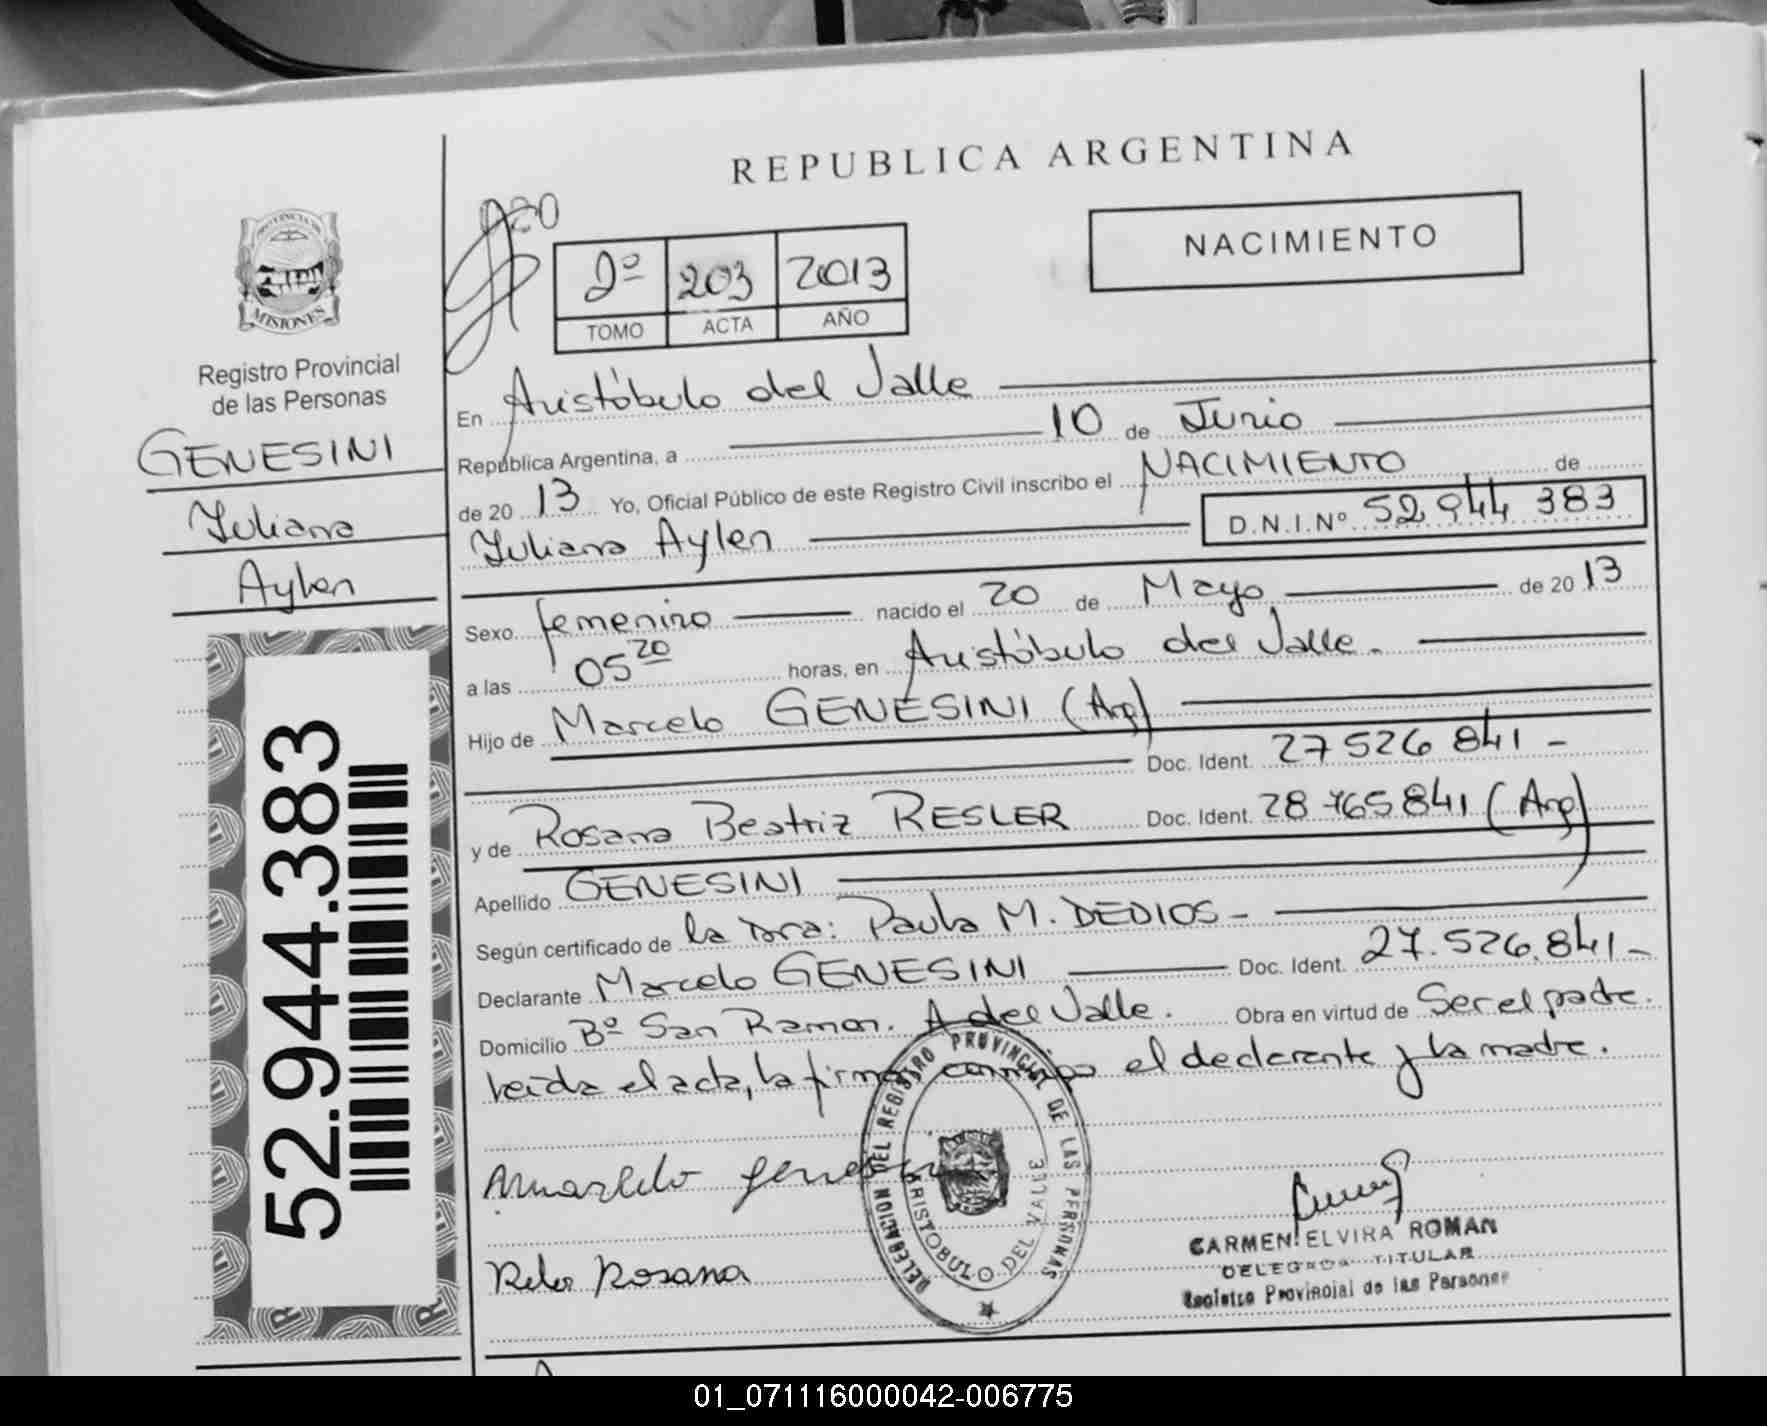 REPUBLICA ARGENTINA
NACIMIENTO
PROVINCIA DE
MISIONES
Registro Provincial
de las Personas
GENESINI
Yuliana
Aylen
52.944.383
120
2º 203 2013
TOMO ACTA AÑO
En Aristóbulo del Valle
República Argentina, a 10 de Junio
de 20 13 Yo, Oficial Público de este Registro Civil inscribo el NACIMIENTO de
Yuliana Aylen D.N.I.Nº 52 944 383
Sexo femenino nacido el 20 de Mayo de 20 13
a las 05 20 horas, en Aristóbulo del Valle.
Hijo de Marcelo GENESINI (Arg)
Doc. Ident. 27 526 841 -
y de Rosana Beatriz RESLER Doc. Ident. 28 765 841 (Arg)
Apellido GENESINI
Según certificado de la Dra: Paula M. DEDIOS -
Declarante Marcelo GENESINI Doc. Ident. 27.526.841 -
Domicilio Bº San Ramon. A del Valle. Obra en virtud de Ser el padre.
Leída el acta, la firman conmigo el declarante y la madre.
DELEGACION DEL REGISTRO PROVINCIAL DE LAS PERSONAS
ARISTOBULO DEL VALLE
Rosana
CARMEN ELVIRA ROMAN
DELEGADA TITULAR
Registro Provincial de las Personas
01_071116000042-006775